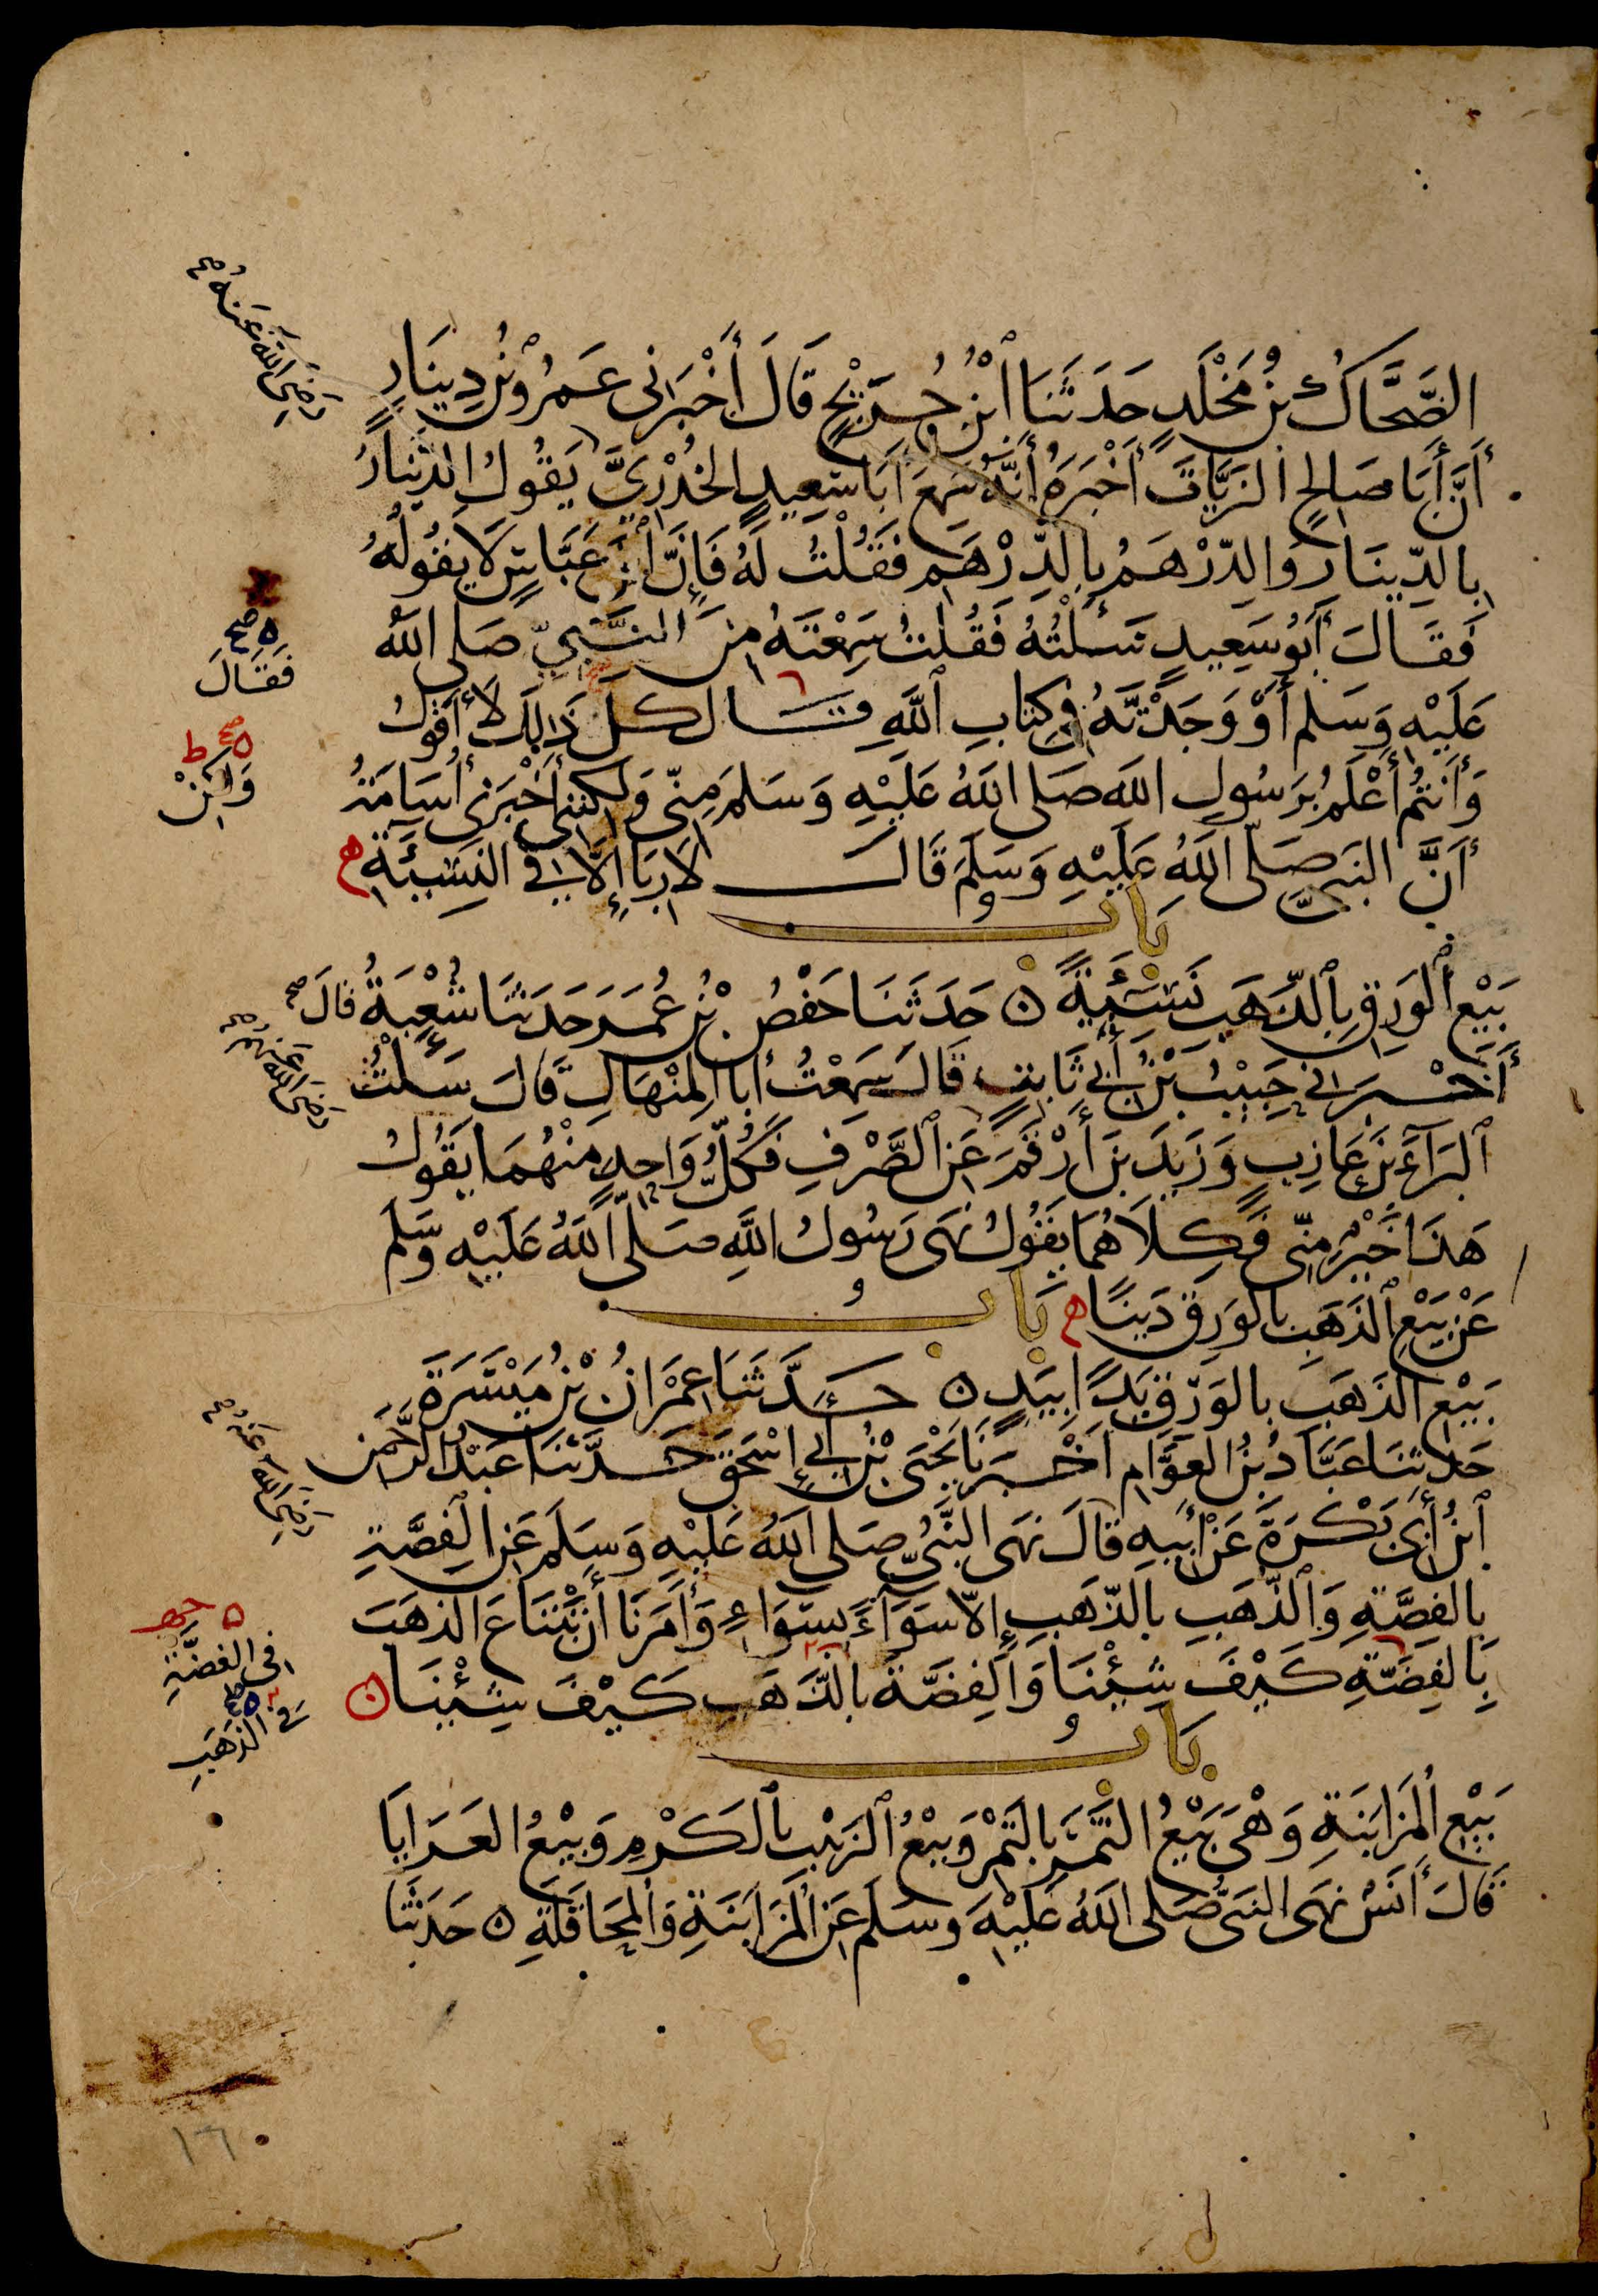 الضَّحَّاكُ بْنُ مَخْلَدٍ حَدَثَنَا ٱبْنُ جُرَيْجٍ قَالَ أَخْبَرَنِى عَمْرُو بْنُ دِينَارٍ
رَضِىَ اللَّهُ عَنْهُ صح
أَنَّ أَبَا صَالِحٍ الزَيَّاتَ أَخْبَرَهُ أَنَّهُ سَمِعَ أَبَا سَعِيدٍ الخُدْرِيَّ يَقُولُ الدِّينَارُ
بِالدِّينَارِ وَالدِّرْهَمُ بِالدِّرْهَمِ فَقُلْتُ لَهُ فَإِنَّ ٱبْنَ عَبَّاسٍ لَا يَقُولُهُ
فَقَالَ أَبُو سَعِيدٍ سَأَلْتُهُ فَقُلْتُ سَمِعْتَهُ مِنَ النَّبِيِّ صَلى اللَّه
ه صح
فَقَالَ
عَلَيْهِ وَسَلم أَوْ وَجَدْتَهُ فِى كِتَابِ ٱللَّهِ قَالَ كلَّ ذَلِكَ لَا أَقُولُ
وَأَنْتُمْ أَعْلَمُ بِرَسُولِ اللَّه صَلى اللَّهُ عَلَيْهِ وَسَلمَ مِنِّى وَلكِنَّنِى أَخْبَرَنِى أُسَامَةُ
ه صح ط
وَلكِنْ
أَنَّ النَبِىَّ صَلَّى اللَّهُ عَلَيْهِ وَسَلَمَ قَالَ لَا رِبَا إِلَّا فِى النَسِيئَةِ ه
بَابُ
بَيْعِ ٱلْوَرِقِ بِٱلذَّهَبِ نَسِيئَةً ه حَدَثَنَا حَفْصُ بْنُ عُمَرَ حَدَثَنَا شُعْبَةُ قَالَ صح
أَخْبَرَنِى حَبِيْبُ بْنُ أَبِى ثَابِتٍ قَالَ سَمِعْتُ أَبَا المِنْهَالِ قَالَ سَأَلْتُ
رَضِىَ اللَّهُ عَنْهُمْ صح
ٱلْبَرَآءَ بْنَ عَازِبٍ وَزَيْدَ بْنَ أَرْقَمَ عَنِ ٱلصَّرْفِ فَكُلُّ وَاحِدٍ مِنْهُمَا يَقُولُ
هَذَا خَيْرٌ مِنِّى فَكِلَاهُمَا يَقُولُ نَهَى رَسُولُ اللَّهِ صَلَّى اللَّهُ عَلَيْهِ وَسَلَم
عَنْ بَيْعِ ٱلذَهَبِ بِالوَرِقِ دَيْنًا ه بَابُ
بَيْعِ الذَهَبِ بِالوَرِقِ يَدًا بِيَدٍ ه حَدَّثَنَا عِمْرَانُ بْنُ مَيْسَرَةَ
حَدثَنَا عَبَّادُ بْنُ العَوَّامِ أَخْبَرَنَا يَحْيَى بْنُ أَبِى إِسْحَقَ حَدَّثَنَا عَبْدُ الرَّحْمَنِ
رَضِىَ اللَّهُ عَنْهُ صح
ٱبْنُ أَبِى بَكْرَةَ عَنْ أَبِيهِ قَالَ نَهَى النَّبِىُّ صَلى اللَّهُ عَلَيْهِ وَسَلَمَ عَنِ الفِضَّةِ
بِالفِضَّةِ وَٱلذَّهَبِ بِالذَّهَبِ إِلَّا سَوَآءً بِسَوَاءٍ وَأَمَرَنَا أَنْ نَبْتَاعَ الذَهَبَ
بِالفِضَّةِ كَيْفَ شِئْنَا وَالفِضَّةَ بِالذَّهَبِ كَيْفَ شِئْنَا ه
فِى الفِضَّةِ
فِى الذَهَبِ
بَابُ
بَيْعِ المُزَابَنَةِ وَهْىَ بَيْعُ التَّمْرِ بِالتَمْرِ وَبَيْعُ ٱلزَبِيْبِ بِٱلكَرْمِ وَبَيْعُ العَرَايَا
قَالَ أَنَسٌ نَهَى النَبِىُّ صَلى اللَّهُ عَلَيْهِ وسَلم عَنِ المُزَابَنَةِ وَالمُحَاقَلَةِ ه حَدَثَنَا
١٦٠